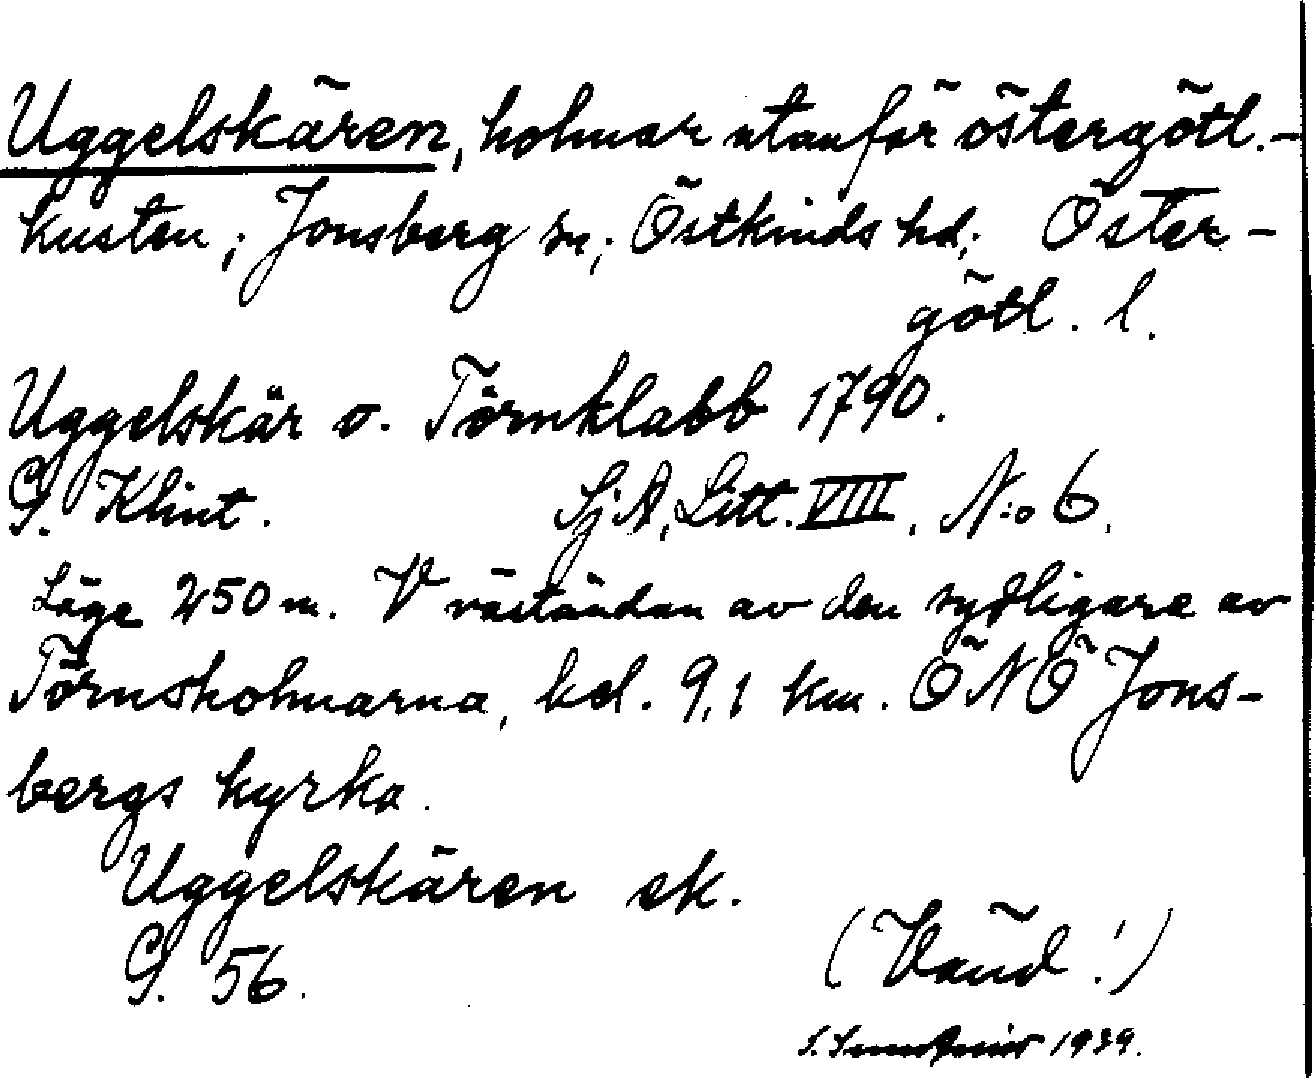 Uggelskären, holmar utanför östergötl.-
kusten; Jonsberg sn; Östkinds hd; Öster-
götl. l.
Uggelskär o. Törnklabb 1790.
G. Klint. Sj A, Litt. VIII, N:o 6.
Läge 250 m. V väständan av den sydligare av
Törnsholmarna, bel. 9,1 km. ÖNÖ Jons-
bergs kyrka.
Uggelskären ek.
G. 56.
(Vänd!)
1939.